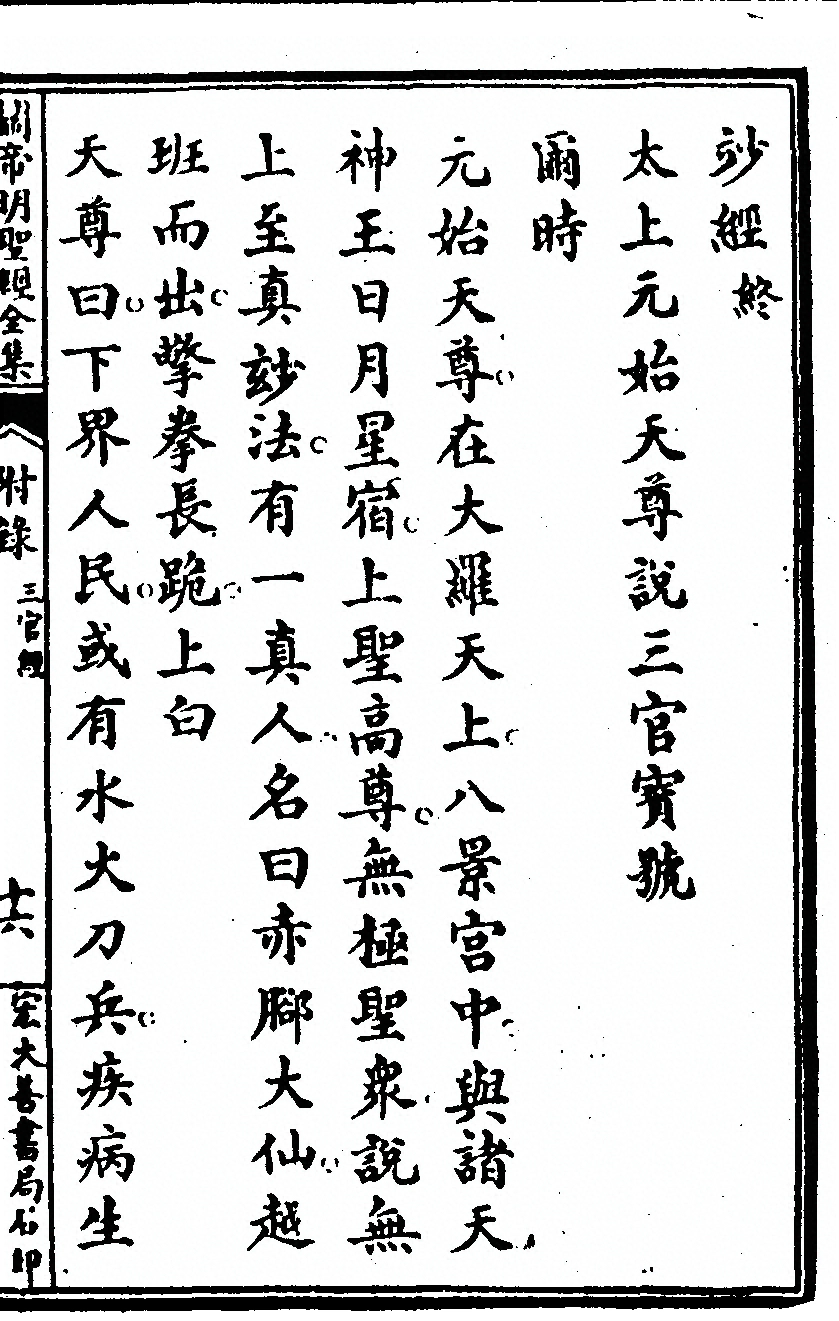 玅經終
太上元始天尊說三官寶號
爾時
元始天尊。在大羅天上。八景宮中。與諸天
神王日月星宿。上聖高尊。無極聖衆。說無
上至真玅法。有一真人。名曰赤腳大仙。越
班而出。擎拳長跪。上白
天尊曰。下界人民。或有水火刀兵。疾病生
關帝明聖經全集
附錄
三官經
十六
宏大善書局石印